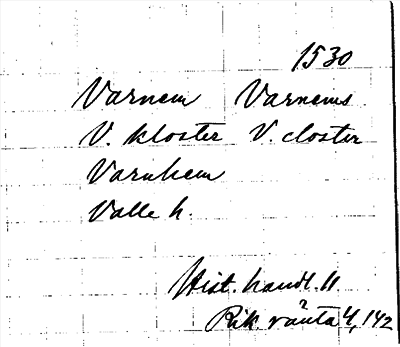 1530
Varnem Varnems
V. kloster V. closter
Varnhem
Valle h.
Hist. handl. 11
Rik. ränta 4, 142